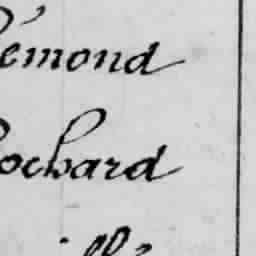 émond
ochard